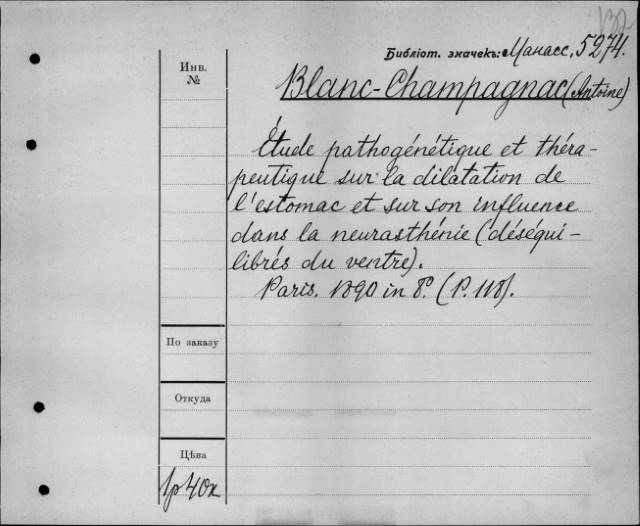 132
Библіот. значекъ: Манасс, 5274.
Инв.
№
Blanc-Champagnac (Antoine)
Étude pathogénétique et théra-
peutique sur la dilatation de
l'estomac et sur son influence
dans la neurasthénie (déséqui-
librés du ventre).
Paris. 1890 in 8º. (P. 118).
По заказу
Откуда
Цѣна
1р 40к